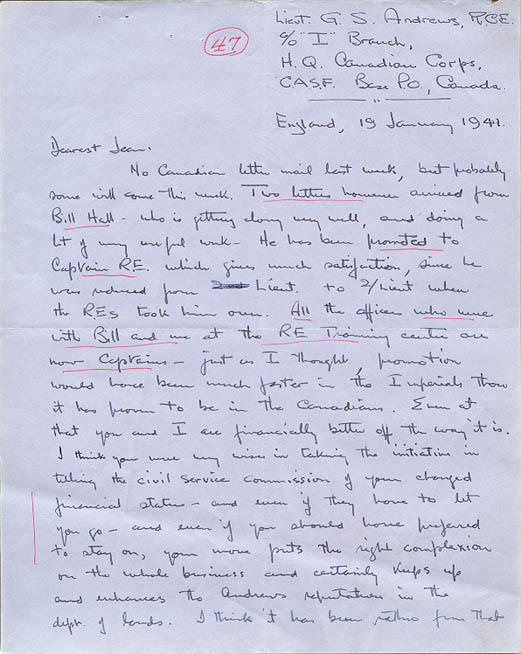 47
Lieut. G. S. Andrews, R.C.E.
c/o "I" Branch,
H. Q. Canadian Corps,
C.A.S.F. Base P.O., Canada.
England, 19 January 1941.
Dearest Jean:
No Canadian letter mail last week, but probably
some will come this week. Two letters however arrived from
Bill Hall - who is getting along very well, and doing a
lot of very useful work - He has been promoted to
Captain R.E. which gives much satisfaction, since he
was reduced from Lieut. to 2/Lieut when
the REs took him over. All the officers who were
with Bill and me at the RE Training centre are
now Captains - just as I thought, promotion
would have been much faster in the Imperials than
it has proven to be in the Canadians. Even at
that you and I are financially better off the way it is.
I think you were very wise in taking the initiative in
telling the civil service commission of your changed
financial status - and even if they have to let
you go - and even if you should have prefered
to stay on, your move puts the right complexion
on the whole business and certainly keeps up
and enhances the Andrews reputation in the
dept. of lands. I think it has been rather fun that